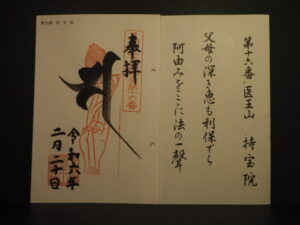 第十六番・医王山 持宝院
父母の深き恵も利保でら
阿由みをここに法の一聲
奉拝
第十六番
令和六年
二月二十日